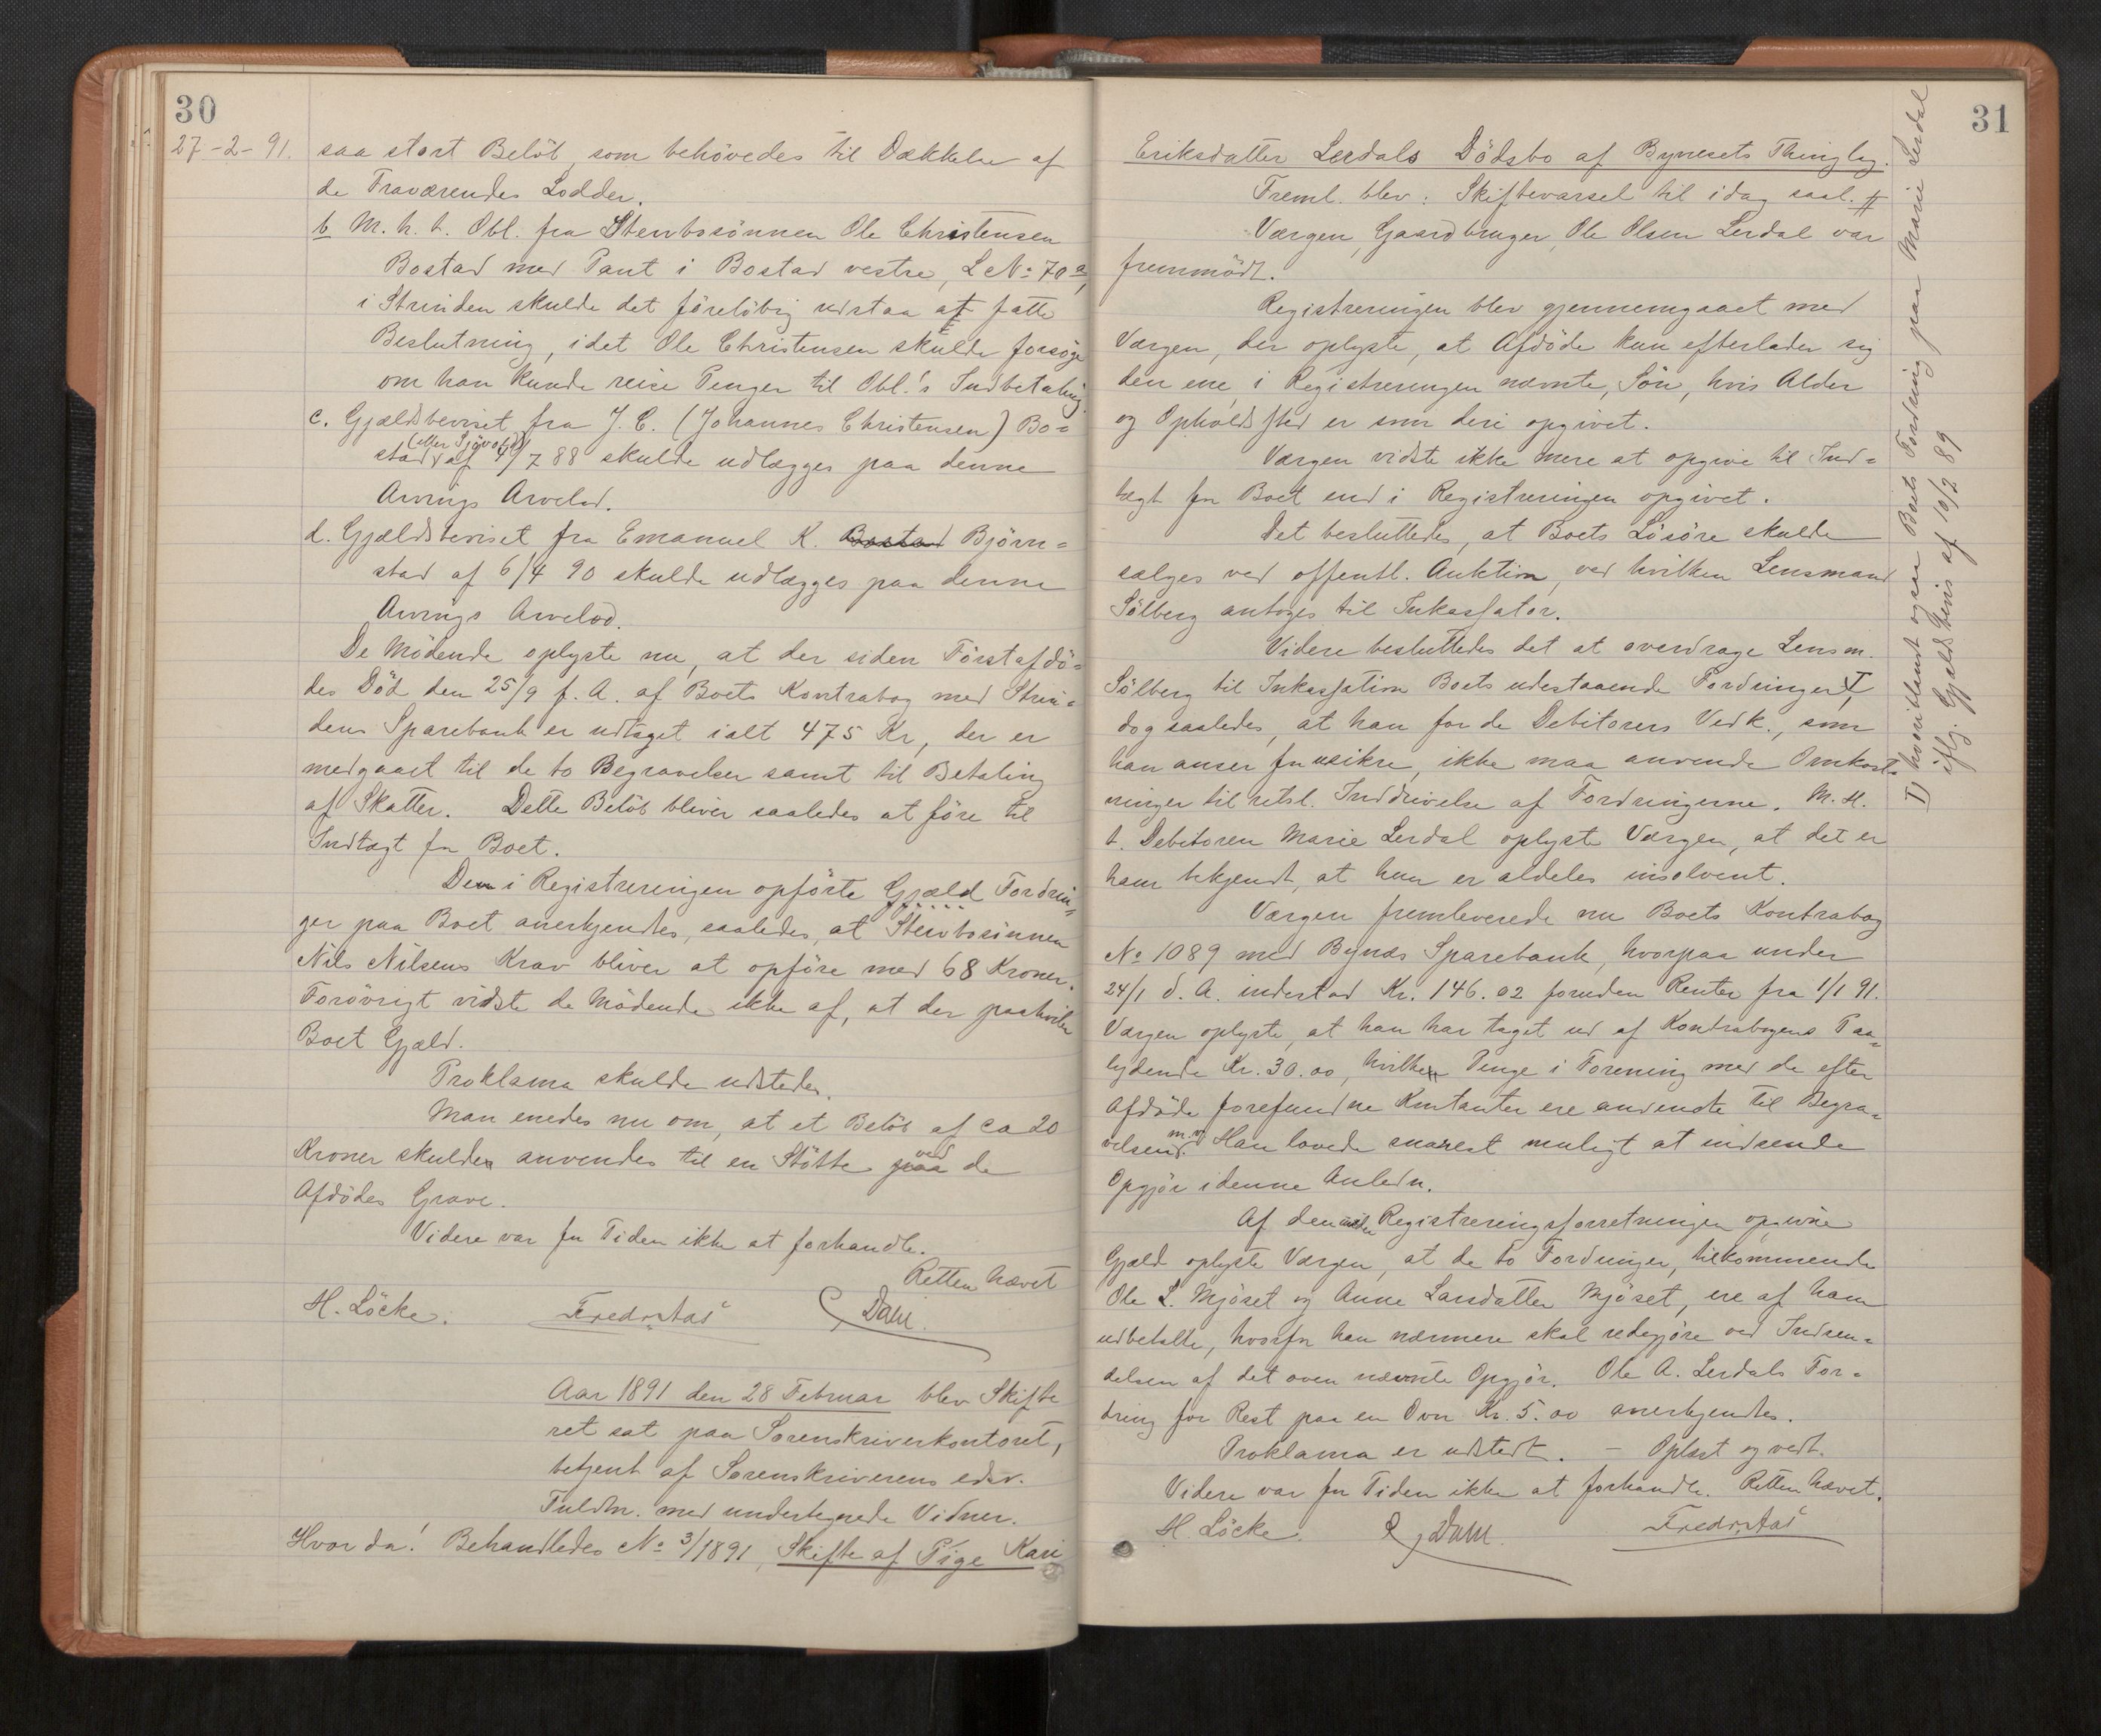 30
27-2-91.
saa stort Belöb, som behövedes til Dækkelse af
de Fraværendes Lodder.
b M. h. t. Obl. fra Stervbosönnen Ole Christensen
Bostad med Pant i Bostad vestre, L№ 70a,
i Strinden skulde det foreløbig udstaa at fatte
Beslutning, idet Ole Christensen skulde forsöge
om han kunde reise Penger til Obl.'s Indbetaling.
c. Gjældsbeviset fra J. C. (Johannes Christensen) Bo=
(eller Sjövold)
stad af 4/7 88 skulde udlægges paa denne
Arvings Arvelod.
d. Gjældsbeviset fra Emanuel K. Bostad Björn=
stad af 6/4 90 skulde udlægges paa denne
Arvings Arvelod.
De Mödende oplyste nu, at der siden Förstafdö=
des Död den 25/9 f. A. af Boets Kontrabog med Strin=
dens Sparebank er udtaget ialt 475 Kr, der er
medgaaet til de to Begravelser samt til Betaling
af Skatter. Dette Belöb bliver saaledes at före til
Indtægt for Boet.
Den i Registreringen opförte Gjæld Fordrin=
ger paa Boet anerkjendtes, saaledes, at Stervbosönnen
Nils Nilsens Krav bliver at opföre med 68 Kroner.
Forövrigt vidste de Mödende ikke af, at der paahviler
Boet Gjæld.
Proklama skulde udstedes.
Man enedes nu om, at et Belöb af ca 20
Kroner skulde anvendes til en Stötte paa ved de
Afdödes Grave.
Videre var for Tiden ikke at forhandle.
Retten hævet
H. Löcke. Fredrstad Dahl.
Aar 1891 den 28 Februar blev Skifte
ret sat paa Sorenskriverkontoret,
betjent af Sorenskriverens edsv.
Fuldm. med undertegnede Vidner.
Hvor da! Behandledes № 3/1891, Skifte af Pige Kari
31
Eriksdatter Lerdals Dödsbo af Bynesets Thinglag.
Freml. blev: Skiftevarsel til idag saal. #
Værgen, Gaardbruger Ole Olsen Lerdal var
fremmödt.
Registreringen blev gjennemgaaet med
Værgen, der oplyste, at Afdöde kun efterlader sig
den ene, i Registreringen nævnte, Sön, hvis Alder
og Opholdssted er som deri opgivet.
Værgen vidste ikke mere at opgive til Ind=
tægt for Boet end i Registreringen opgivet.
Det besluttedes, at Boets Lösöre skulde
sælges ved offentl. Auktion, ved hvilken Lensmand
Sölberg antoges til Inkassator.
Videre besluttedes det at overdrage Lensm.
Sölberg til Inkassation Boets udestaaende Fordringer I),
dog saaledes, at han for de Debitorers Vedk., som
han anser for usikre, ikke maa anvende Omkost=
ninger til retsl. Inddrivelse af Fordringerne. M. H.
t. Debitoren Marie Lerdal oplyste Værgen, at det er
ham bekjendt, at hun er aldeles insolvent.
Værgen fremleverede nu Boets Kontrabog
№ 1089 med Bynæs Sparebank, hvorpaa under
24/1 d. A. indestod Kr. 146.02 foruden Renter fra 1/1 91.
Værgen oplyste, at han har taget ud af Kontrabogens Paa=
lydende Kr. 30.00, hvilke Penge i Forening med de efter
Afdöde forefundne Kontanter ere anvendte til Begra=
velsen m.v. Han lovede snarest muligt at indsende
Opgjör i denne Anledn.
Af den under Registreringsforretningen opgivne
Gjæld oplyste Værgen, at de to Fordringer, tilkommende
Ole L. Mjöset og Anne Larsdatter Mjöset, ere af ham
udbetalte, hvorfor han nærmere skal redegjöre ved Indsen=
delsen af det oven nævnte Opgjör. Ole A. Lerdals For=
dring for Rest paa en Ovn Kr. 5.00 anerkjendtes.
Proklama er udstedt. — Oplæst og vedt.
Videre var for Tiden ikke at forhandle. Retten hævet.
H. Löcke Dahl. Fredrstad
I) hvoriblandt ogsaa Boets Fordring paa Marie Lerdal
iflg. Gjældsbevis af 10/2 89